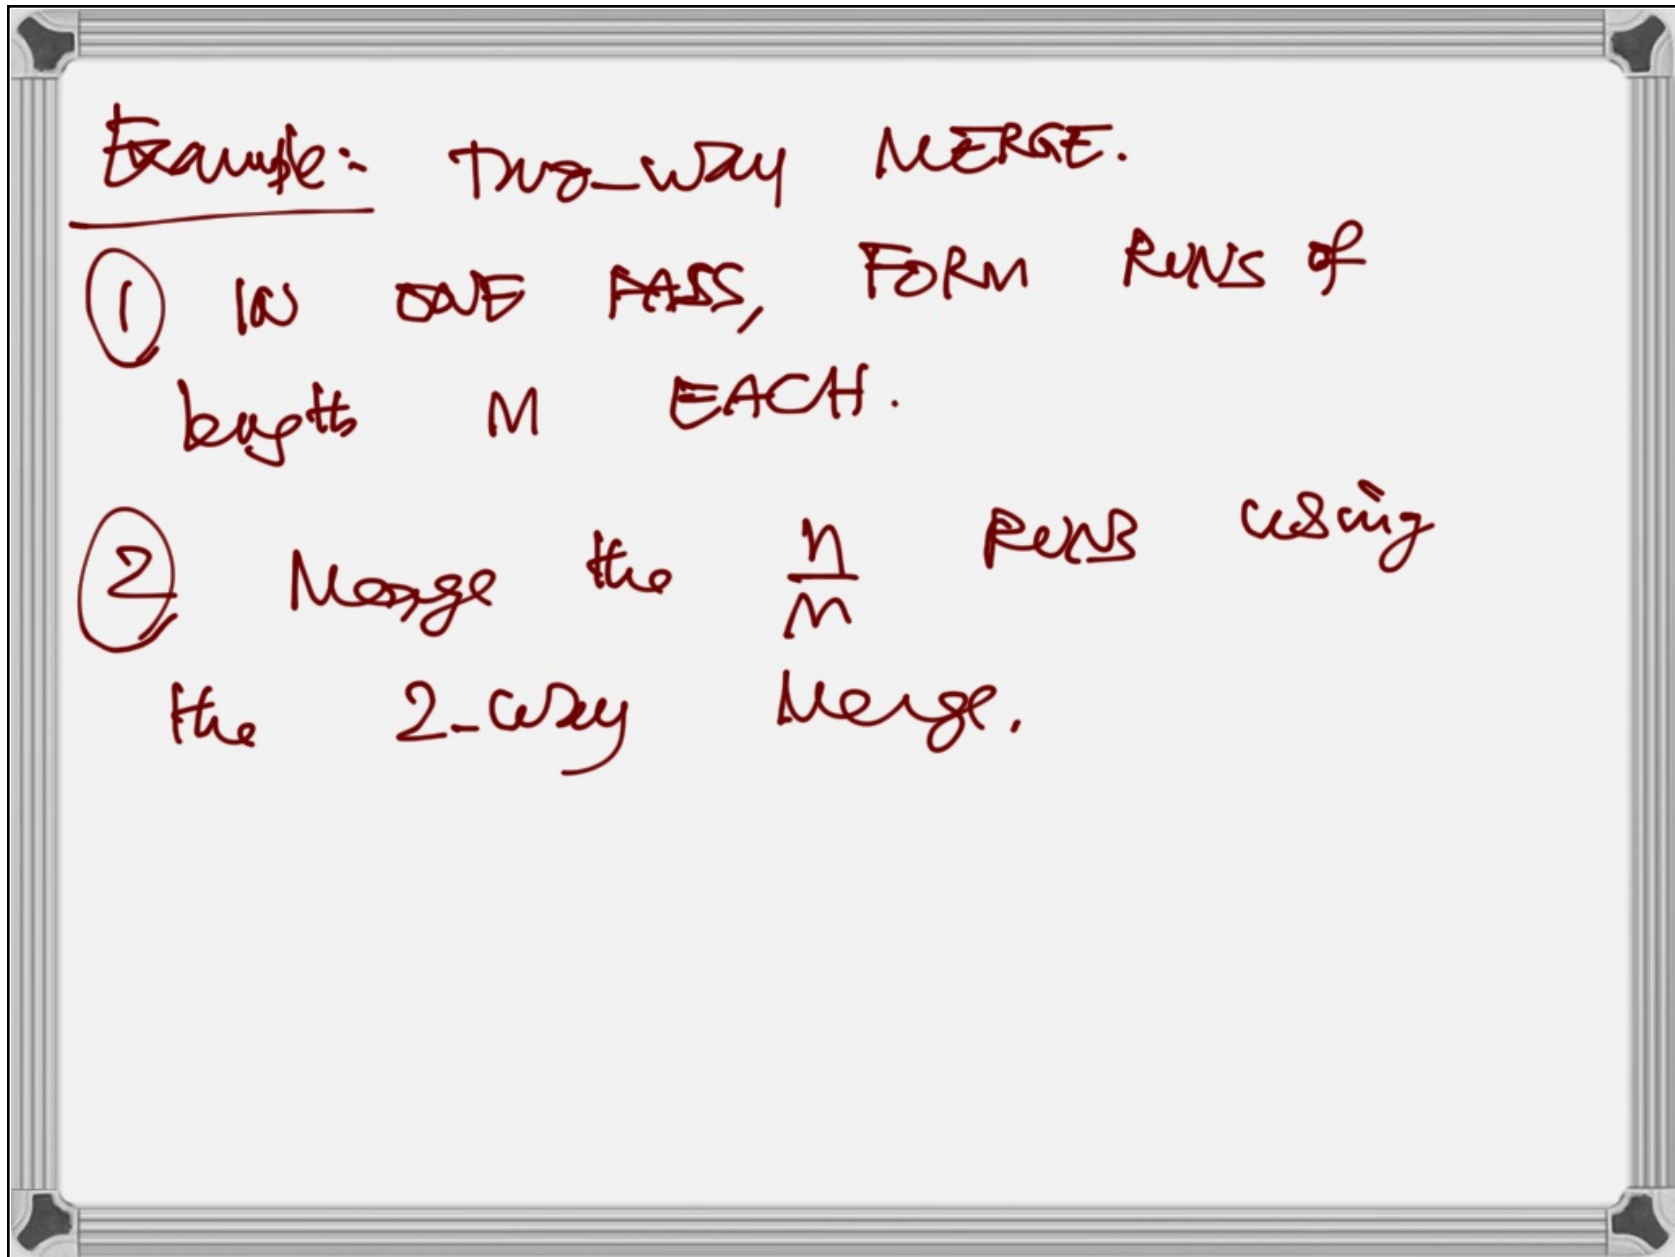 Example:- Two-way MERGE.
① IN ONE PASS, FORM RUNS of
length M EACH.
② Merge the n/M RUNS using
the 2-way Merge.